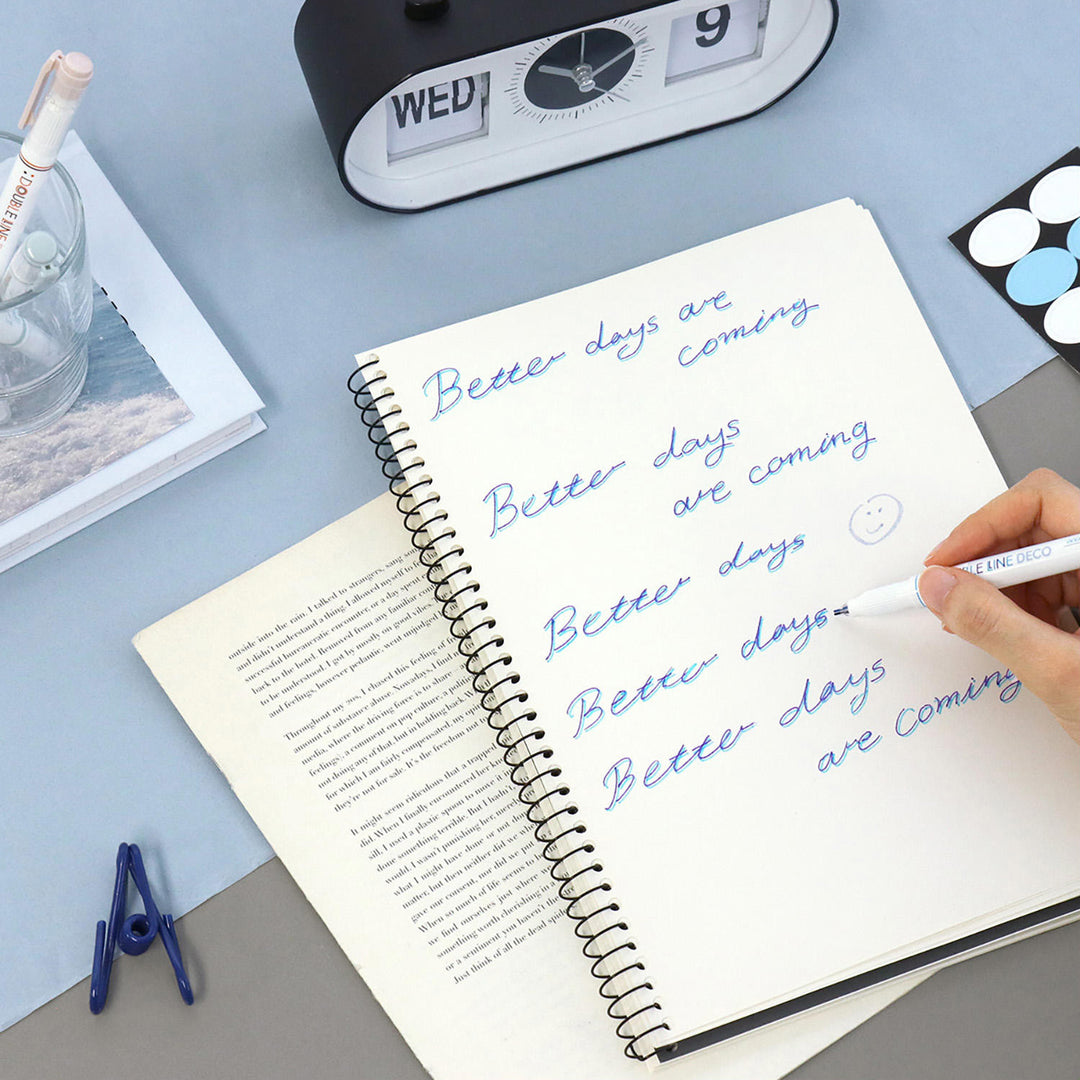 WED
9
:DOUBLE LINE
Better days are
coming
Better days
are coming
Better days
Better days
Better days
are coming
LINE DECO
outside into the rain. I talked to strangers, sang
and didn't understand a thing. I allowed myself to
successful bureaucratic encounter, or a day spent
back to the hotel. Removed from any familiar
to be understood. I got by mostly on good vibes,
and feelings, however pedantic, went unjudged
Throughout my 20s, I chased this feeling of
amount of substance abuse. Nowadays, I find
media, where the driving force is to share
feelings, a comment on pop culture, a
not thing any of that but in holding back.
for which I am fairly compensated, my
they're not for sale. It's the freedom
It might seem ridiculous that a trapped
did. When I finally encountered her
sill, I used a plastic spoon to move it
done something terrible. But I had
would. I wasn't punishing her, merely
what I might have done or not
matter, but then neither did we
gave our consent, nor did we
When so much of life seems to
we find ourselves just where
something worth cherishing in
or a sentiment you haven't the
Just think of all the dead